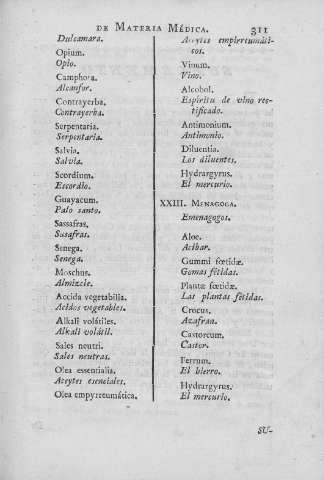 DE MATERIA MÉDICA. 311
Dulcamara.
Opium.
Opio.
Camphora.
Alcanfor.
Contrayerba.
Contrayerba.
Serpentaria.
Serpentaria.
Salvia.
Salvia.
Scordium.
Escordio.
Guayacum.
Palo santo.
Sassafras.
Sasafras.
Senega.
Senega.
Moschus.
Almizcle.
Accida vegetabilia.
Acidos vegetables.
Alkali volátiles.
Alkali volátil.
Sales neutri.
Sales neutras.
Olea essentialia.
Aceytes esenciales.
Olea empyrreumática.
Aceytes empirreumáti-
cos.
Vinum.
Vino.
Alcohol.
Espíritu de vino rec-
tificado.
Antimonium.
Antimonio.
Diluentia.
Los diluentes.
Hydrargyrus.
El mercurio.
XXIII. MENAGOGA.
Emenagogos.
Aloe.
Acibar.
Gummi fœtidæ.
Gomas fétidas.
Plantæ fœtidæ.
Las plantas fétidas.
Crocus.
Azafran.
Castorcum.
Castor.
Ferrum.
El hierro.
Hydrargyrus.
El mercurio.
SU-